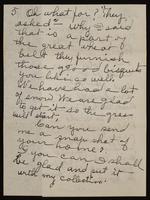 5. Oh what for? They
asked - Why I said
that is a part of
the great wheat
belt they furnish
those good biscuits
you like so well.
We have had a lot
of snow. We are glad
to get it so the grass
will start.
Can you send
me a snap shot of
your home?
If you can I shall
be glad and put it
with my collection.